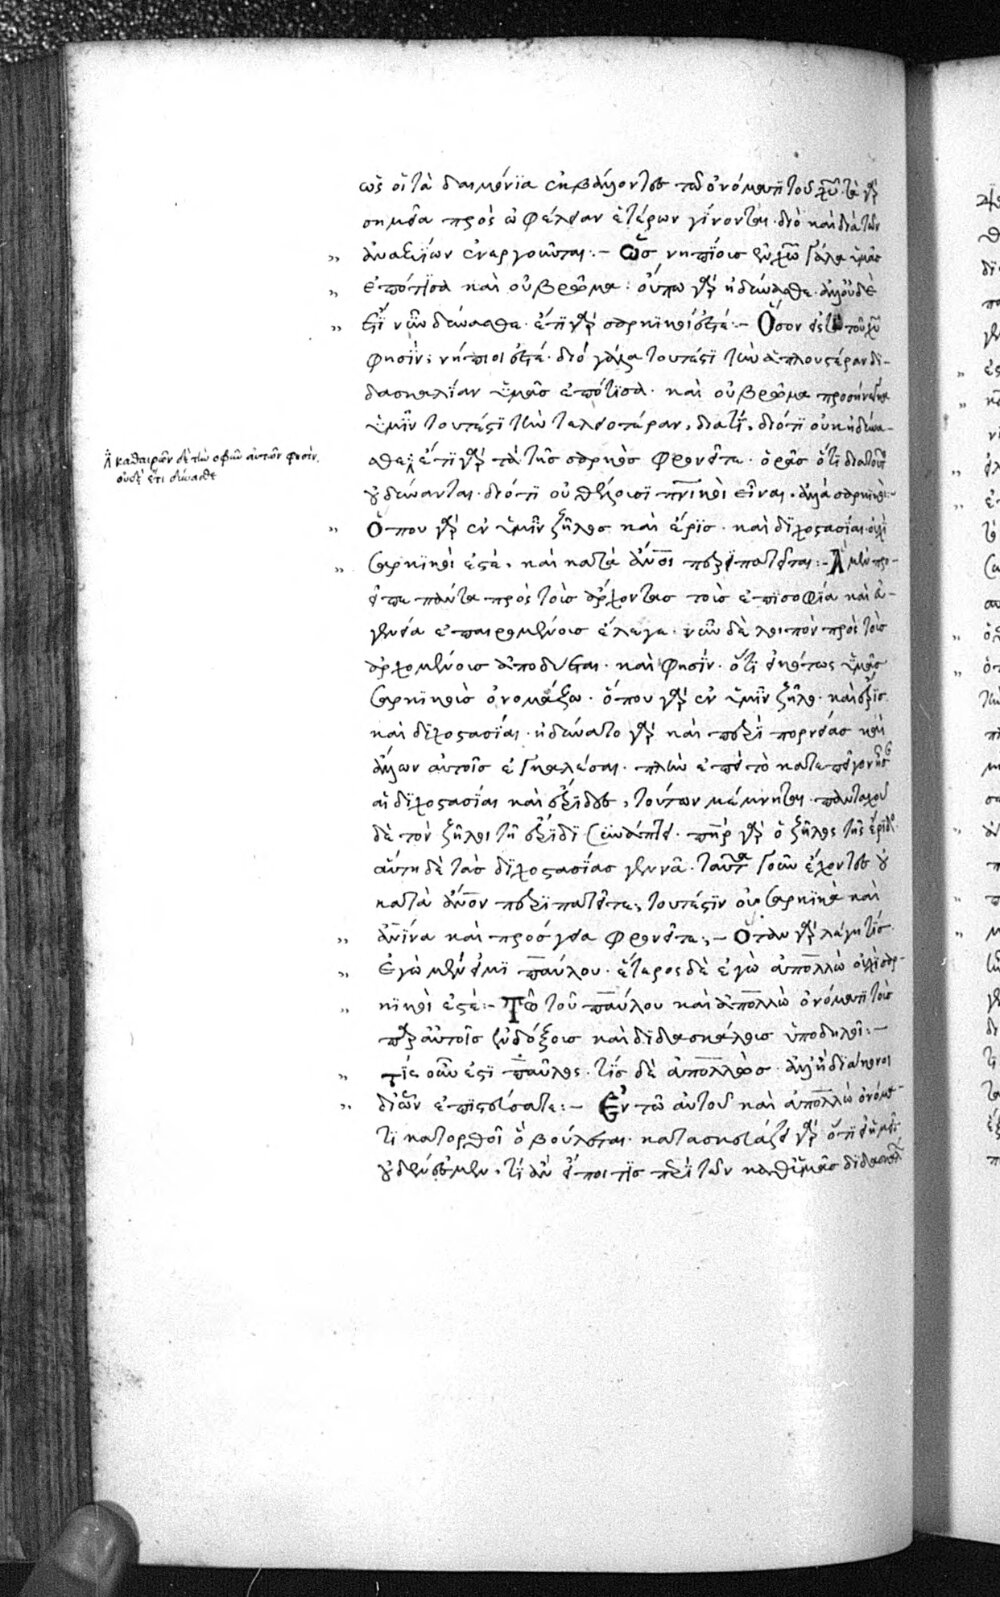 ὡς οἱ τὰ δαιμόνια ἐκβάλλοντες τῶ ὀνόματι τοῦ χυ· τὰ γὰρ
σημεῖα πρὸς ὠφέλειαν ἑτέρων γίνονται· διὸ καὶ διὰ τῶν
ἀναξίων ἐνεργοῦνται:– Ὡς νηπίοις ἐν χω γάλα ὑμᾶς
ἐπότισα καὶ οὐ βρῶμα· οὔπω γὰρ ἠδύνασθε· ἀλλ' οὐδὲ
ἔτι νῦν δύνασθε· ἔτι γὰρ σαρκικοί ἐστέ:– Ὅσον
φησὶν· νήπιοι ἐστέ· διὸ γάλα τουτέστι τὴν ἁπλουστέραν δι-
δασκαλίαν ὑμᾶς ἐπότισα· καὶ οὐ βρῶμα
ὑμῖν τουτέστι τὴν τελειοτέραν, διατί, διότι οὐκ ἠδύνα-
σθε· ἔτι γὰρ τὰ τῆς σαρκὸς φρονεῖτε· ὁρᾶς ὅτι διὰ τοῦτο
οὐ δύνανται· διότι οὐ θέλουσι πνικοὶ εἶναι· ἀλλὰ σαρκικοί:–
Ὅπου γὰρ ἐν ὑμῖν ζῆλος καὶ ἔρις· καὶ διχοστασίαι οὐχὶ
σαρκικοί ἐστέ, καὶ κατὰ ἄνον περιπατεῖτε:– Ἃ μὲν
εἶπε πάντα πρὸς τοὺς ἄρχοντας τοὺς ἐπὶ σοφία καὶ εὐ-
γενεία ἐπαιρομένους ἔλεγε· νῦν δὲ λοιπὸν πρὸς τοὺς
ἀρχομένους ἀποδύεται· καὶ φησίν· ὅτι εἰκότως ὑμᾶς
σαρκικοὺς ὀνομάζω· ὅπου γὰρ ἐν ὑμῖν ζῆλος καὶ ἔρις
καὶ διχοστασίαι· ἠδύνατο γὰρ καὶ περὶ πορνείας καὶ
ἄλλων αὐτοῖς ἐγκαλέσαι· πλὴν ἐπεὶ τὸ κατεπεῖγον ἦσαν
αἱ διχοστασίαι καὶ ἔριδες, τούτων μέμνηται· πανταχοῦ
δὲ τὸν ζῆλον τῆ ἔριδι συνάπτει· πηρ γὰρ ὁ ζῆλος τῆς ἔριδος
αὕτη δὲ τὰς διχοστασίας γεννᾶ· ταῦτα γοῦν ἔχοντες οὐ
κατὰ ἄνον περιπατεῖτε, τουτέστιν οὐ σαρκικὰ καὶ
ἀνινα καὶ πρόσγεια φρονεῖτε;– Ὅταν γὰρ λέγη τίς
Ἐγὼ μὲν εἰμὶ παύλου· ἕτερος δὲ ἐγὼ ἀπολλὼ οὐχὶ σαρ-
κικοί ἐστέ:– Τῶ τοῦ παύλου καὶ ἀπολλὼ ὀνόματι τοὺς
παρ' αὐτοῖς ἐνδόξους καὶ διδασκάλους ὑποδηλοῖ:–
Τίς οὖν ἐστι παῦλος· τίς δὲ ἀπολλὼς· ἀλλ' ἢ διάκονοι
δι' ὧν ἐπιστεύσατε:– Ἐν τῶ αὐτοῦ καὶ ἀπολλὼ ὀνόμα-
τι κατορθοῖ ὃ βούλεται· κατασκευάζει γὰρ ὅτι εἰ ἡμεῖς
οὐδέν ἐσμεν, τί ἂν εἴποι τις περὶ τῶν καθ' ὑμᾶς διδασκάλων
καθαιρῶν δὲ τὴν ὀφρὺν αὐτῶν φησίν.
οὐδὲ ἔτι δύνασθε